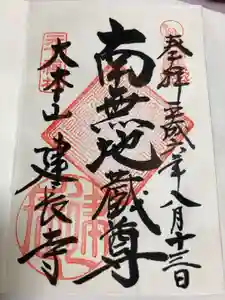 奉拝 平成六年八月十三日
南無地蔵尊
大本山 建長寺